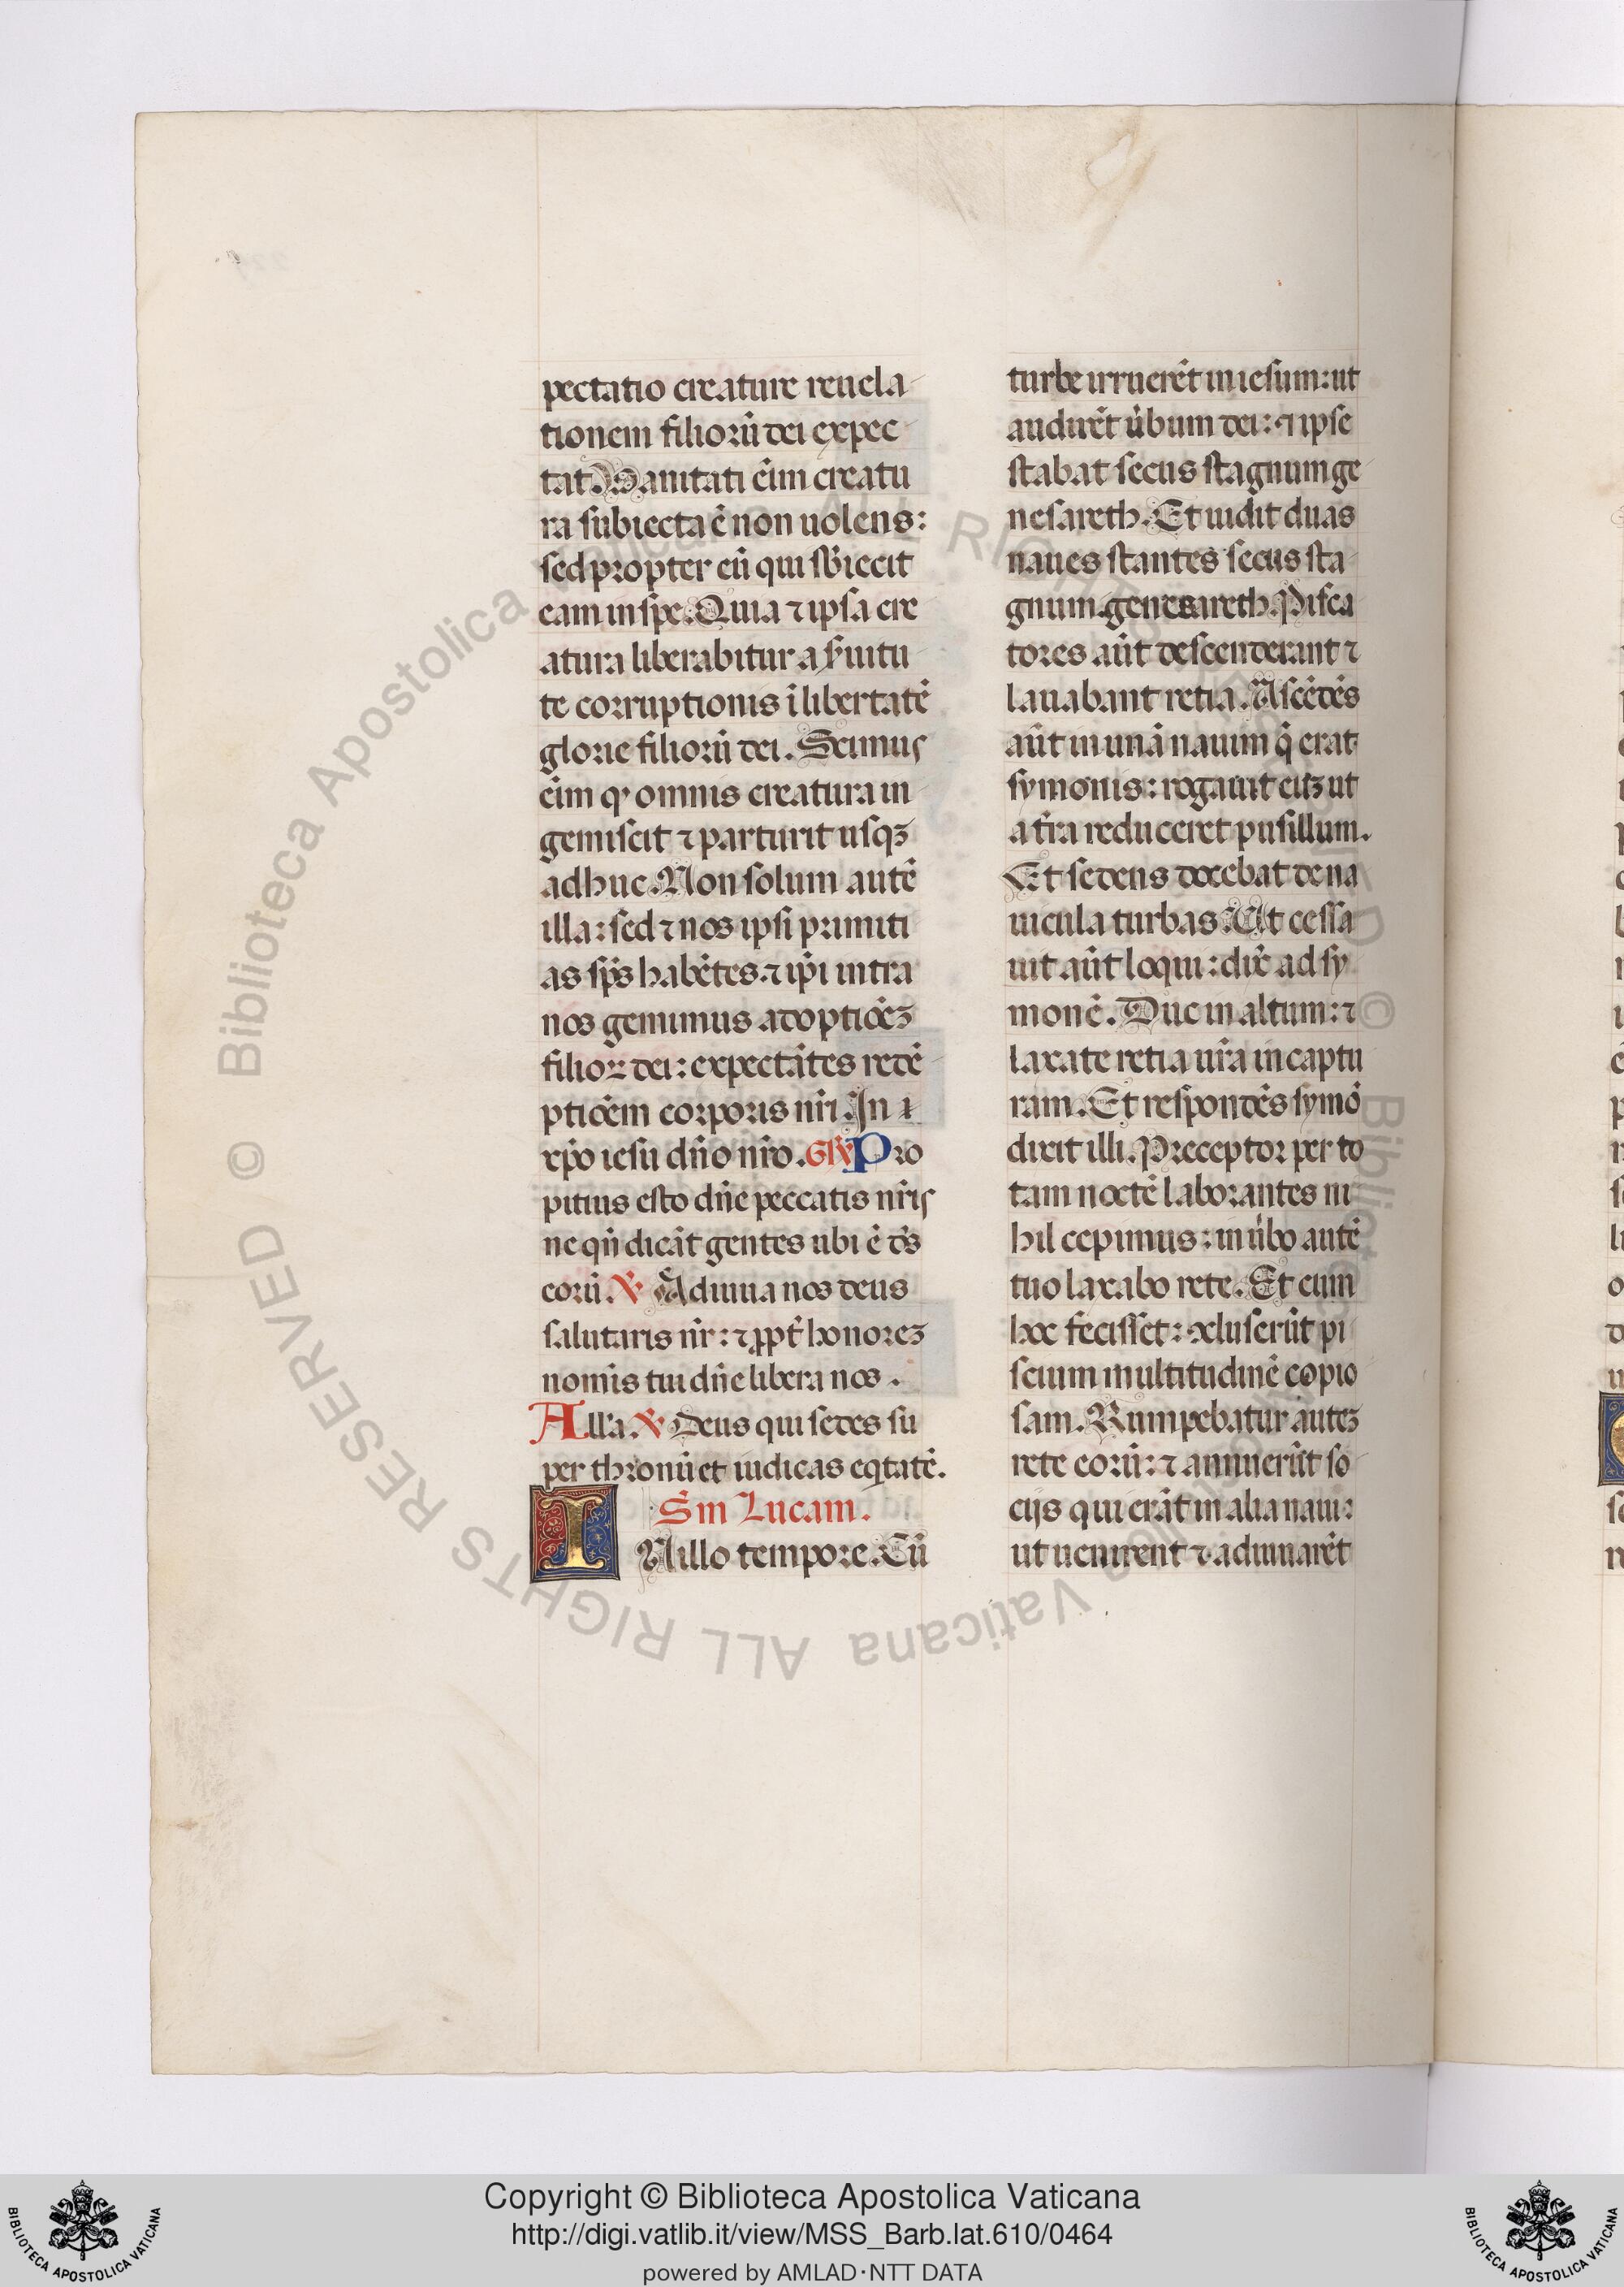 pectatio creature reuela
tionem filiorū dei expec
tat. Vanitati eīm creatu
ra subiecta ē non uolens:
sed propter eū qui sb̄iecit
eam in spe. Quia ⁊ ipsa cre
atura liberabitur a s̄uitu
te corruptionis ī libertatē
glorie filiorū dei. Scimus
eīm qꝰ omnis creatura in
gemiscit ⁊ parturit usqꝫ
adhuc. Non solum autē
illa: sed ⁊ nos ipsi primiti
as sp̄s habētes. ⁊ ip̄i intra
nos gemimus adoptiōeꝫ
filioꝝ dei: expectātes redē
ptiōem corporis nr̄i. In
xp̄o iesu dn̄o nr̄o. Pro
pitius esto dn̄e peccatis nr̄is
ne qn̄ dicāt gentes ubi ē ds̄
eorū. ℣ Adiuua nos deus
salutaris nr̄: ⁊ ꝓpt̄ honoreꝫ
nomis tui dn̄e libera nos.
All'a. ℣ Deus qui sedes su
per thronū et iudicas eq̄tatē.
Sm̄ Lucam.
IN illo tempore. Cū
turbe irruerēt in iesum: ut
audirēt ūbum dei: ⁊ ipse
stabat secus stagnum ge
nesareth. Et uidit duas
naues stantes secus sta
gnum genesareth. Pisca
tores aūt descenderant ⁊
lauabant retia. Ascēdēs
aūt in unā nauim q̄ erat
symonis: rogauit euꝫ ut
a tr̄a reduceret pusillum.
Et sedens docebat de na
uicula turbas. Ut cessa
uit aūt loqui: dix̄ ad sy
monē. Duc in altum: ⁊
laxate retia ur̄a in captu
ram. Et respondēs symō
dixit illi. Preceptor per to
tam noctē laborantes ni
hil cepimus: in ūbo autē
tuo laxabo rete. Et cum
hoc fecisset: ɔcluserūt pi
scium multitudinē copio
sam. Rumpebatur auteꝫ
rete eorū: ⁊ annuerūt so
cijs qui erāt in alia naui:
ut uenirent ⁊ adiuuarēt
© Biblioteca Apostolica Vaticana ALL RIGHTS RESERVED
Copyright © Biblioteca Apostolica Vaticana
http://digi.vatlib.it/view/MSS_Barb.lat.610/0464
powered by AMLAD·NTT DATA
BIBLIOTECA APOSTOLICA VATICANA
BIBLIOTECA APOSTOLICA VATICANA